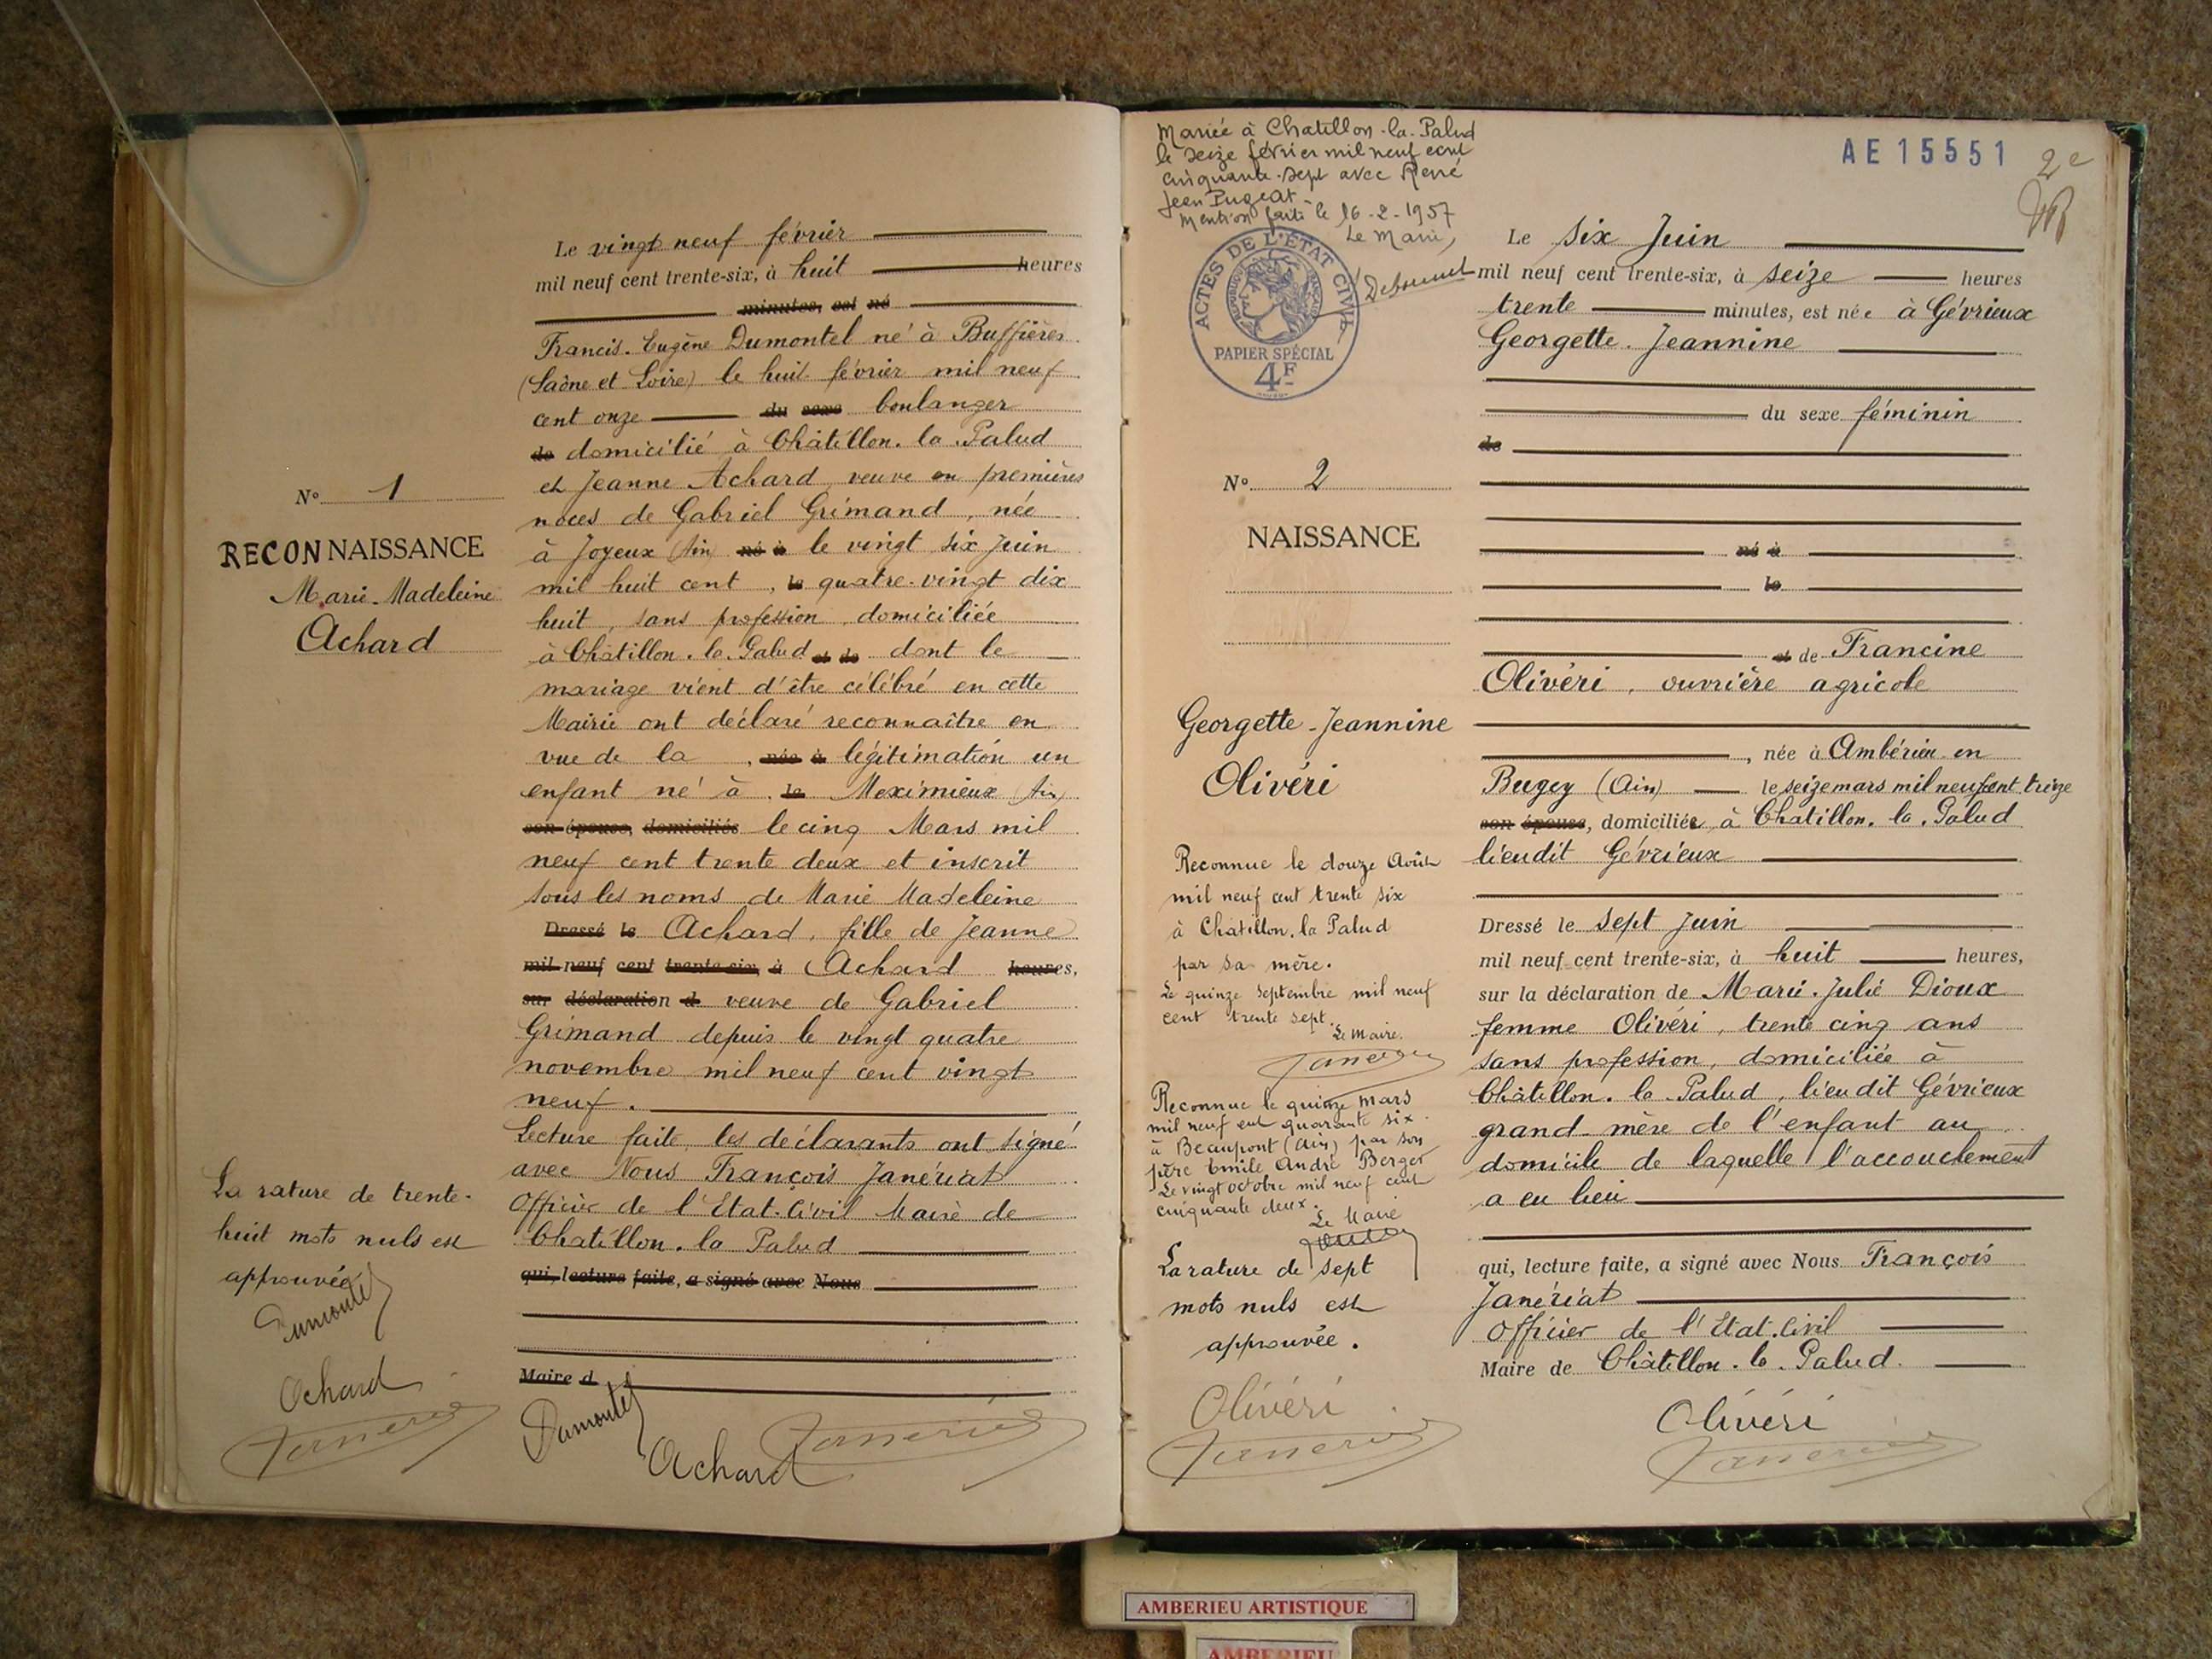 Le vingt neuf février
mil neuf cent trente-six, à huit heures
minutes, est né
Francis. Eugène Dumontel né à Buffières
(Saône et Loire) le huit février mil neuf
cent onze du sexe boulanger
de domicilié à Châtillon. la. Palud
et Jeanne Achard, veuve en premières
noces de Gabriel Grimand, née
à Joyeux (Ain) né à le vingt six Juin
mil huit cent, le quatre-vingt dix
huit, sans profession, domiciliée
à Châtillon. la. Palud et de dont le
mariage vient d'être célébré en cette
Mairie ont déclaré reconnaître en
vue de la, née à légitimation un
enfant né à, le Meximieux (Ain)
son épouse, domiciliés le cinq Mars mil
neuf cent trente deux et inscrit
sous les noms de Marie Madeleine
Dressé le Achard, fille de Jeanne
mil neuf cent trente-six, à Achard heures,
sur déclaration d veuve de Gabriel
Grimand depuis le vingt quatre
novembre mil neuf cent vingt
neuf.
Lecture faite, les déclarants ont signé
avec Nous François Janériat
Officier de l'Etat-Civil Maire de
Chatillon. la Palud
qui, lecture faite, a signé avec Nous
Maire d
Dumontel
Achard
Janériat
N° 1
RECONNAISSANCE
Marie-Madeleine
Achard
La rature de trente-
huit mots nuls est
approuvée
Dumontel
Achard
Janériat
Mariée à Chatillon-la-Palud
le seize février mil neuf cent
cinquante-sept avec René
Jean Pugeat-
Mention faite le 16-2-1957
Le Maire,
ACTES DE L'ÉTAT CIVIL
PAPIER SPÉCIAL
4F
N° 2
NAISSANCE
Georgette-Jeannine
Olivéri
Reconnue le douze Août
mil neuf cent trente six
à Chatillon. la Palud
par sa mère.
Le quinze Septembre mil neuf
cent trente sept.
Le Maire.
Janériat
Reconnue le quinze mars
mil neuf cent quarante six
à Beaupont (Ain) par son
père Emile André Berger
Le vingt octobre mil neuf cent
cinquante deux.
Le Maire
La rature de sept
mots nuls est
approuvée.
Olivéri
Janériat
AE 15551
2e
Le six Juin
mil neuf cent trente-six, à seize heures
trente minutes, est née à Gévrieux
Georgette. Jeannine
du sexe féminin
de
né à
le
et de Francine
Olivéri, ouvrière agricole
, née à Ambérieu en
Bugey (Ain) le seize mars mil neuf cent treize
son épouse, domiciliée à Chatillon. la. Palud
lieudit Gévrieux
Dressé le sept Juin
mil neuf cent trente-six, à huit heures,
sur la déclaration de Marie. Julie Dioux
femme Olivéri, trente cinq ans
sans profession, domiciliée à
Châtillon. la. Palud, lieudit Gévrieux
grand-mère de l'enfant au
domicile de laquelle l'accouchement
a eu lieu
qui, lecture faite, a signé avec Nous François
Janériat
Officier de l'Etat.Civil
Maire de Châtillon. la. Palud.
Olivéri
Janériat
AMBERIEU ARTISTIQUE
AMBERIEU